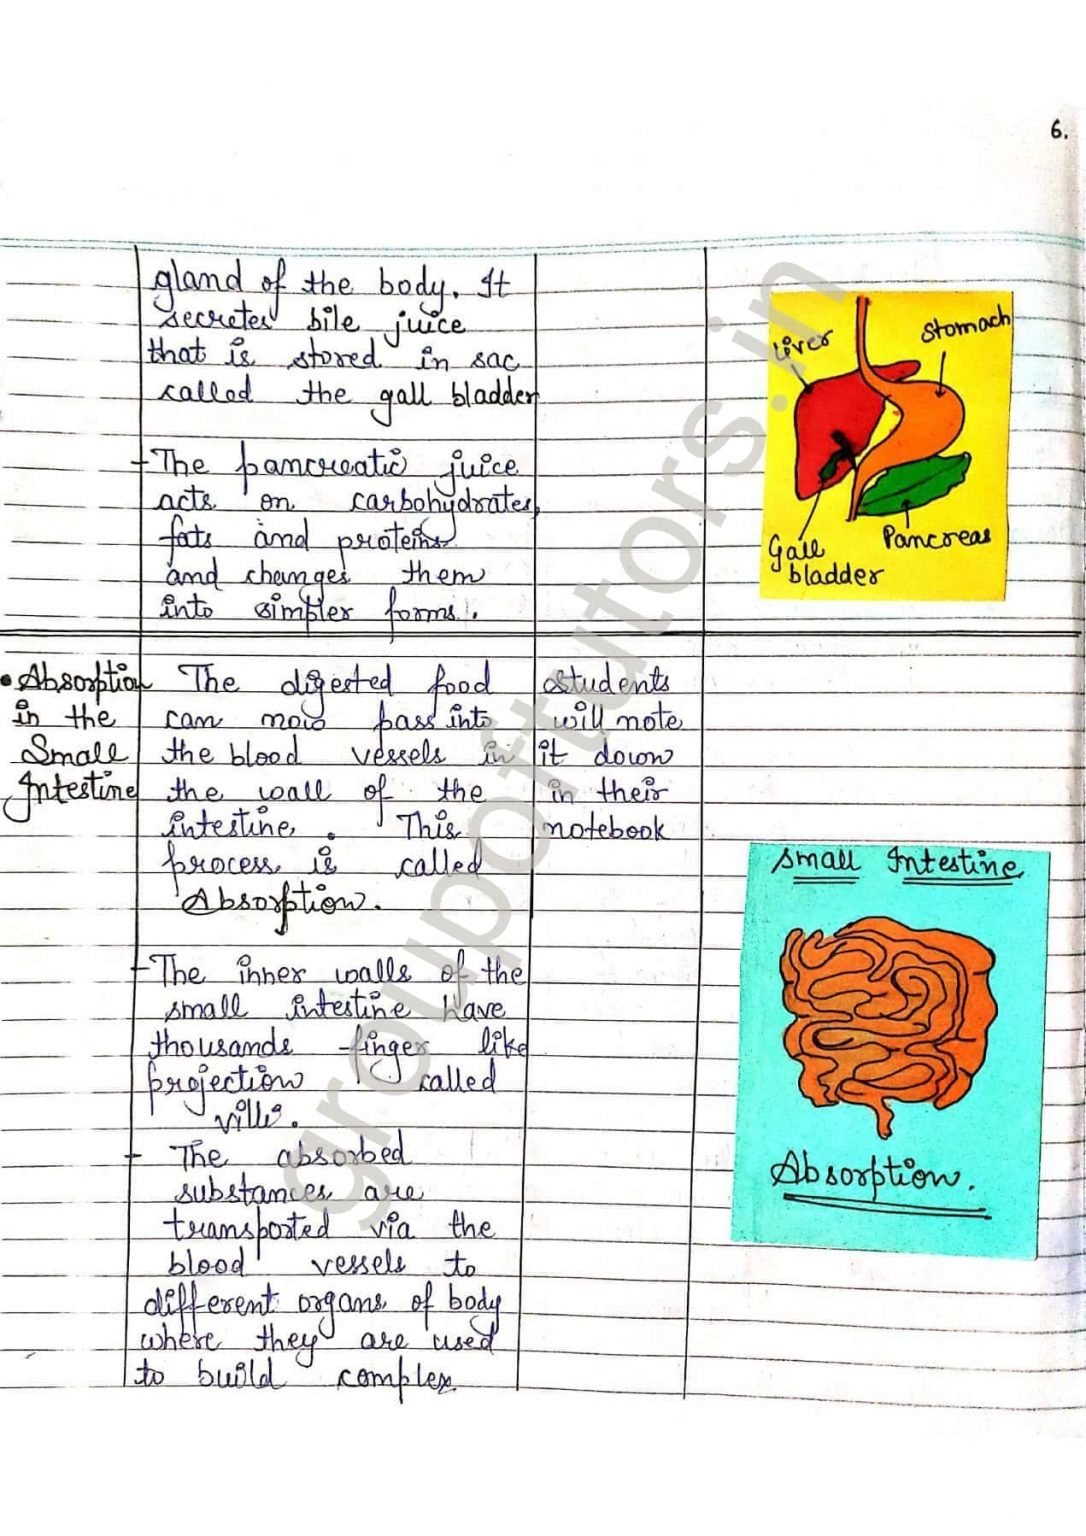 6.
gland of the body. It
secretes bile juice
that is stored in sac
called the gall bladder
- The pancreatic juice
acts on carbohydrates,
fats and proteins
and changes them
into simpler forms.
Liver
Stomach
Gall
bladder
Pancreas
• Absorption
in the
Small
Intestine
The digested food
can now pass into
the blood vessels in
the wall of the
intestine. This
process is called
Absorption.
- The inner walls of the
small intestine have
thousands finger like
projection called
villi.
- The absorbed
substances are
transported via the
blood vessels to
different organs of body
where they are used
to build complex
students
will note
it down
in their
notebook
Small Intestine
Absorption.
groupoftutors.in